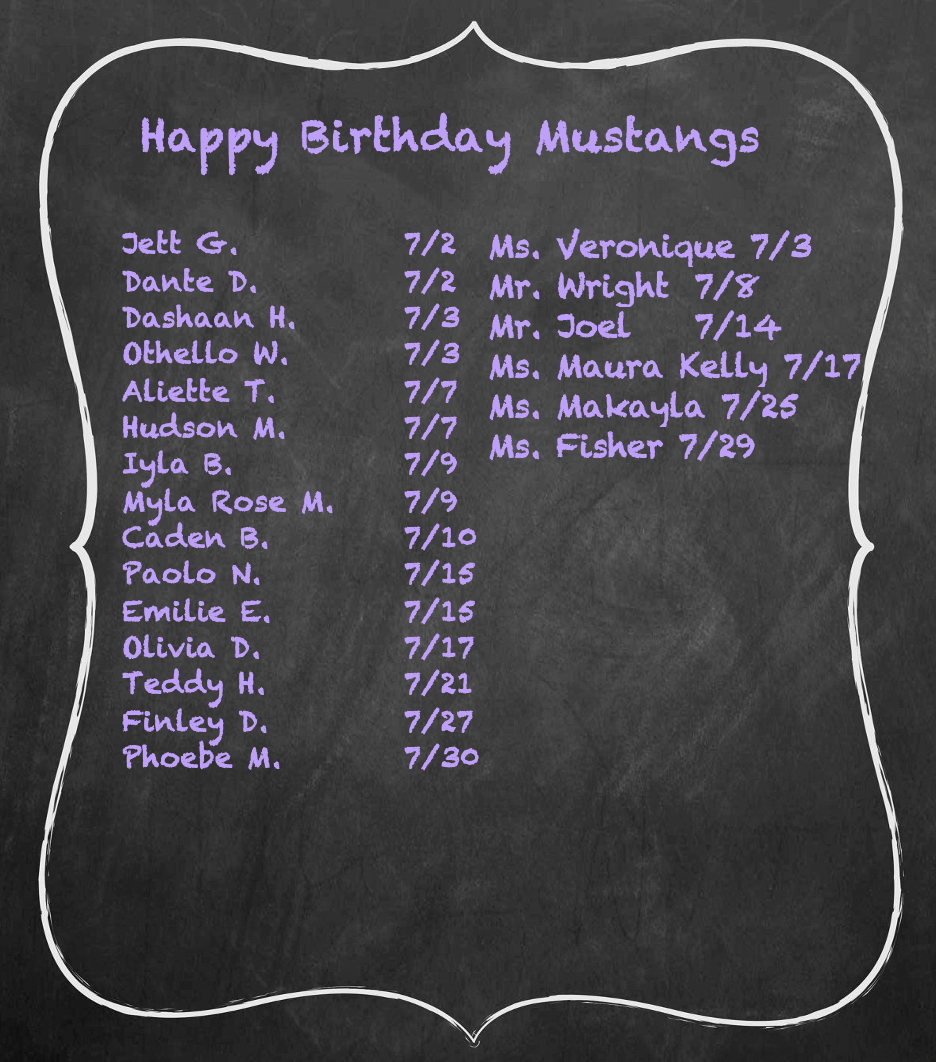 Happy Birthday Mustangs
Jett G. 7/2
Dante D. 7/2
Dashaan H. 7/3
Othello W. 7/3
Aliette T. 7/7
Hudson M. 7/7
Iyla B. 7/9
Myla Rose M. 7/9
Caden B. 7/10
Paolo N. 7/15
Emilie E. 7/15
Olivia D. 7/17
Teddy H. 7/21
Finley D. 7/27
Phoebe M. 7/30
Ms. Veronique 7/3
Mr. Wright 7/8
Mr. Joel 7/14
Ms. Maura Kelly 7/17
Ms. Makayla 7/25
Ms. Fisher 7/29